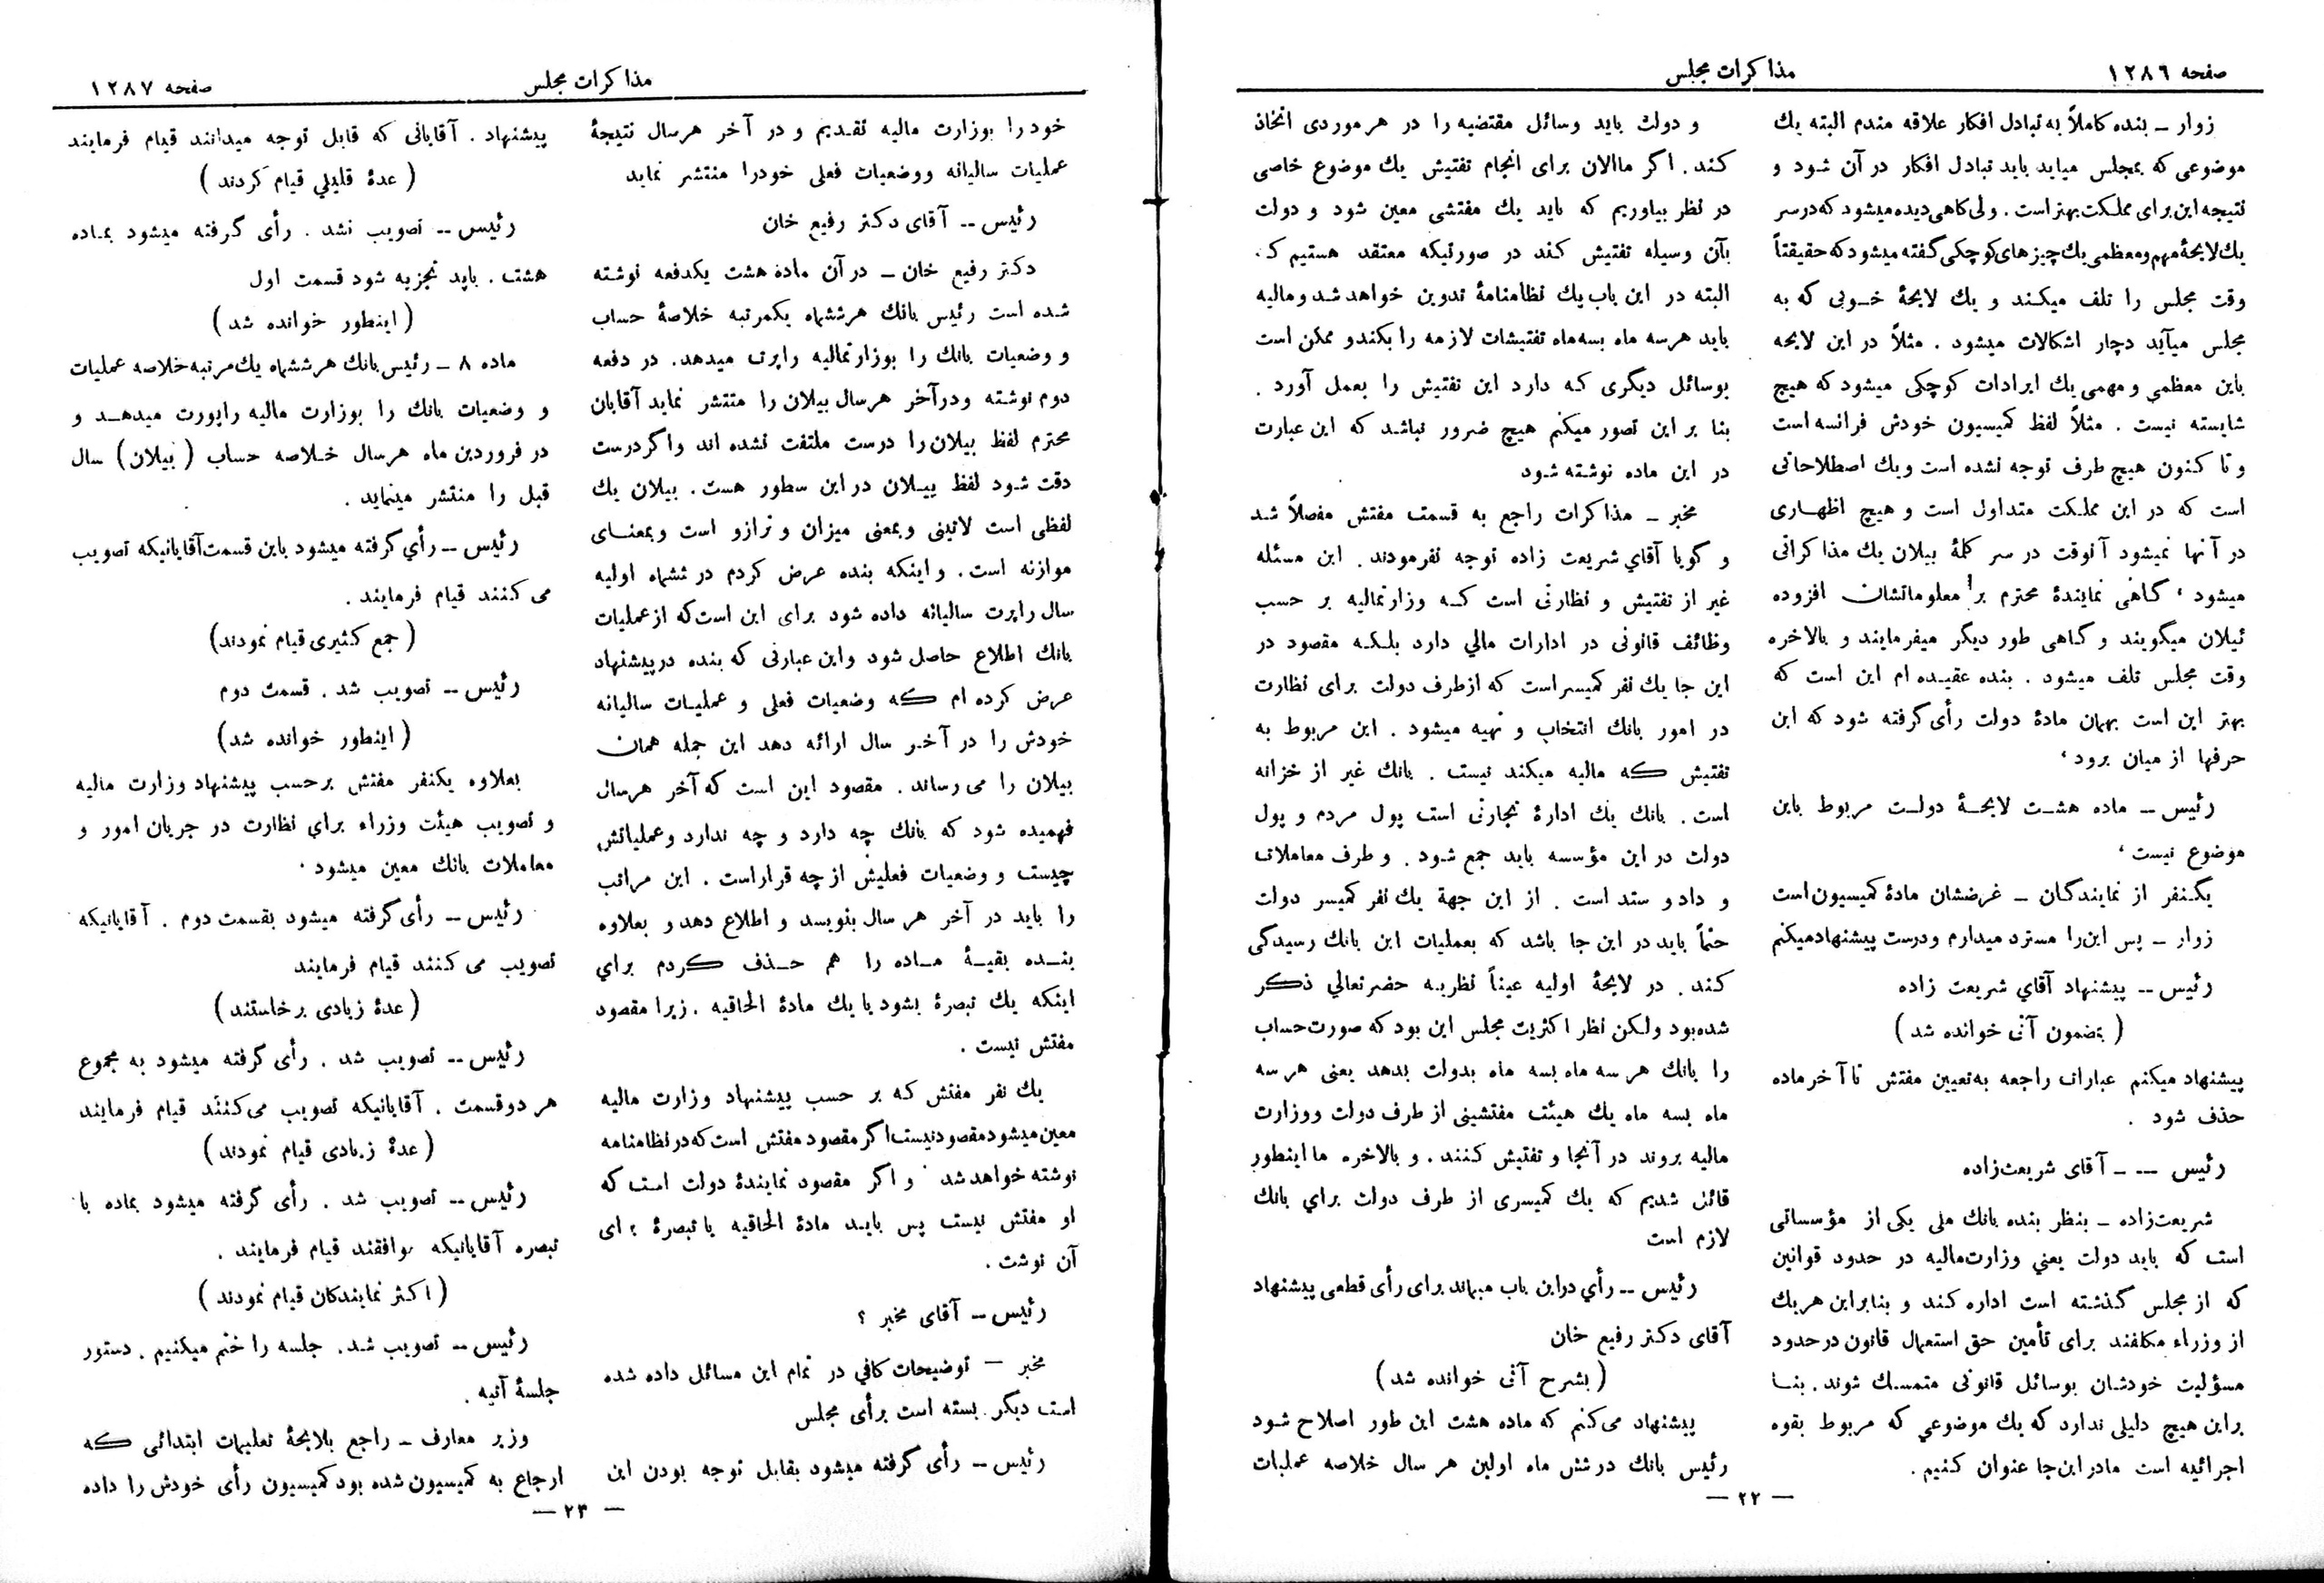 صفحه ۱۲۸۶
مذاکرات مجلس
زوار ـ بنده کاملاً به تبادل افکار علاقه مندم البته یك
موضوعی که بمجلس میاید باید تبادل افکار در آن شود و
نتیجه این برای مملکت بهتر است . ولی گاهی دیده میشود که در سر
یك لایحهٔ مهم و معظمی یك چیزهای کوچکی گفته میشود که حقیقتاً
وقت مجلس را تلف میکند و یك لایحهٔ خوبی که به
مجلس میآید دچار اشکالات میشود . مثلاً در این لایحه
باین معظمی و مهمی یك ایرادات کوچکی میشود که هیچ
شایسته نیست . مثلاً لفظ کمیسیون خودش فرانسه است
و تا کنون هیچ طرف توجه نشده است و یك اصطلاحاتی
است که در این مملکت متداول است و هیچ اظهاری
در آنها نمیشود آنوقت در سر کلمهٔ بیلان یك مذاکراتی
میشود ، گاهی نمایندهٔ محترم بر معلوماتشان افزوده
ئیلان میگویند و گاهی طور دیگر میفرمایند و بالاخره
وقت مجلس تلف میشود . بنده عقیده ام این است که
بهتر این است بهمان مادهٔ دولت رأی گرفته شود که این
حرفها از میان برود ،
رئیس ـ ماده هشت لایحهٔ دولت مربوط باین
موضوع نیست ،
یکنفر از نمایندگان ـ غرضشان مادهٔ کمیسیون است
زوار ـ پس این را مسترد میدارم و درست پیشنهاد میکنم
رئیس ـ پیشنهاد آقای شریعت زاده
( بمضمون آتی خوانده شد )
پیشنهاد میکنم عبارات راجعه به تعیین مفتش تا آخر ماده
حذف شود .
رئیس ـ ـ آقای شریعت‌زاده
شریعت‌زاده ـ بنظر بنده بانك ملی یکی از مؤسساتی
است که باید دولت یعنی وزارت‌مالیه در حدود قوانین
که از مجلس گذشته است اداره کند و بنابراین هر یك
از وزراء مکلفند برای تأمین حق استعمال قانون در حدود
مسؤلیت خودشان بوسائل قانونی متمسك شوند . بنا
براین هیچ دلیلی ندارد که یك موضوعی که مربوط بقوه
اجرائیه است ما در این‌جا عنوان کنیم .
و دولت باید وسائل مقتضیه را در هر موردی اتخاذ
کند . اگر ما الان برای انجام تفتیش یك موضوع خاصی
در نظر بیاوریم که باید یك مفتشی معین شود و دولت
بآن وسیله تفتیش کند در صورتیکه معتقد هستیم که
البته در این باب یك نظامنامهٔ تدوین خواهد شد و مالیه
باید هر سه ماه بسه ماه تفتیشات لازمه را بکند و ممکن است
بوسائل دیگری که دارد این تفتیش را بعمل آورد .
بنا بر این تصور میکنم هیچ ضرور نباشد که این عبارت
در این ماده نوشته شود
مخبر ـ مذاکرات راجع به قسمت مفتش مفصلاً شد
و گویا آقای شریعت زاده توجه نفرمودند . این مسئله
غیر از تفتیش و نظارتی است که وزارتمالیه بر حسب
وظائف قانونی در ادارات مالی دارد بلکه مقصود در
این جا یك نفر کمیسر است که از طرف دولت برای نظارت
در امور بانك انتخاب و تهیه میشود . این مربوط به
تفتیش که مالیه میکند نیست . بانك غیر از خزانه
است . بانك یك ادارهٔ تجارتی است پول مردم و پول
دولت در این مؤسسه باید جمع شود . و طرف معاملات
و داد و ستد است . از این جهة یك نفر کمیسر دولت
حتماً باید در این جا باشد که بعملیات این بانك رسیدگی
کند . در لایحهٔ اولیه عیناً نظریه حضرتعالی ذکر
شده بود ولکن نظر اکثریت مجلس این بود که صورت حساب
را بانك هر سه ماه بسه ماه بدولت بدهد یعنی هر سه
ماه بسه ماه یك هیئت مفتشینی از طرف دولت و وزارت
مالیه بروند در آنجا و تفتیش کنند . و بالاخره ما اینطور
قائل شدیم که یك کمیسری از طرف دولت برای بانك
لازم است
رئیس ـ رأی در این باب میماند برای رأی قطعی پیشنهاد
آقای دکتر رفیع خان
( بشرح آتی خوانده شد )
پیشنهاد می‌کنم که ماده هشت این طور اصلاح شود
رئیس بانك در شش ماه اولین هر سال خلاصه عملیات
ـ ۲۲ ـ
مذاکرات مجلس
صفحه ۱۲۸۷
خود را بوزارت مالیه تقدیم و در آخر هر سال نتیجهٔ
عملیات سالیانه و وضعیات فعلی خود را منتشر نماید
رئیس ـ آقای دکتر رفیع خان
دکتر رفیع خان ـ در آن ماده هشت یکدفعه نوشته
شده است رئیس بانك هر ششماه یکمرتبه خلاصهٔ حساب
و وضعیات بانك را بوزارتمالیه راپرت میدهد . در دفعه
دوم نوشته و در آخر هر سال بیلان را منتشر نماید آقایان
محترم لفظ بیلان را درست ملتفت نشده اند و اگر درست
دقت شود لفظ بیلان در این سطور هست . بیلان یك
لفظی است لاتینی و بمعنی میزان و ترازو است و بمعنای
موازنه است . و اینکه بنده عرض کردم در ششماه اولیه
سال راپرت سالیانه داده شود برای این است که از عملیات
بانك اطلاع حاصل شود و این عبارتی که بنده در پیشنهاد
عرض کرده ام که وضعیات فعلی و عملیات سالیانه
خودش را در آخر سال ارائه دهد این جمله همان
بیلان را می رساند . مقصود این است که آخر هر سال
فهمیده شود که بانك چه دارد و چه ندارد و عملیاتش
چیست و وضعیات فعلیش از چه قرار است . این مراتب
را باید در آخر هر سال بنویسد و اطلاع دهد و بعلاوه
بنده بقیهٔ ماده را هم حذف کردم برای
اینکه یك تبصرهٔ بشود یا یك مادهٔ الحاقیه . زیرا مقصود
مفتش نیست .
یك نفر مفتش که بر حسب پیشنهاد وزارت مالیه
معین میشود مقصود نیست اگر مقصود مفتش است که در نظامنامه
نوشته خواهد شد و اگر مقصود نمایندهٔ دولت است که
او مفتش نیست پس باید مادهٔ الحاقیه یا تبصرهٔ برای
آن نوشت .
رئیس ـ آقای مخبر ؟
مخبر ـ توضیحات کافی در تمام این مسائل داده شده
است دیگر بسته است برأی مجلس
رئیس ـ رأی گرفته میشود بقابل توجه بودن این
پیشنهاد . آقایانی که قابل توجه میدانند قیام فرمایند
( عدهٔ قلیلی قیام کردند )
رئیس ـ تصویب نشد . رأی گرفته میشود بماده
هشت . باید تجزیه شود قسمت اول
( اینطور خوانده شد )
ماده ۸ ـ رئیس بانك هر ششماه یك مرتبه خلاصه عملیات
و وضعیات بانك را بوزارت مالیه راپورت میدهد و
در فروردین ماه هر سال خلاصه حساب ( بیلان ) سال
قبل را منتشر مینماید .
رئیس ـ رأی گرفته میشود باین قسمت آقایانیکه تصویب
می کنند قیام فرمایند .
( جمع کثیری قیام نمودند )
رئیس ـ تصویب شد . قسمت دوم
( اینطور خوانده شد )
بعلاوه یکنفر مفتش بر حسب پیشنهاد وزارت مالیه
و تصویب هیئت وزراء برای نظارت در جریان امور و
معاملات بانك معین میشود .
رئیس ـ رأی گرفته میشود بقسمت دوم . آقایانیکه
تصویب می کنند قیام فرمایند
( عدهٔ زیادی برخاستند )
رئیس ـ تصویب شد . رأی گرفته میشود به مجموع
هر دو قسمت . آقایانیکه تصویب می‌کنند قیام فرمایند
( عدهٔ زیادی قیام نمودند )
رئیس ـ تصویب شد . رأی گرفته میشود بماده با
تبصره آقایانیکه موافقند قیام فرمایند .
( اکثر نمایندگان قیام نمودند )
رئیس ـ تصویب شد . جلسه را ختم میکنیم . دستور
جلسهٔ آتیه .
وزیر معارف ـ راجع بلایحهٔ تعلیمات ابتدائی که
ارجاع به کمیسیون شده بود کمیسیون رأی خودش را داده
ـ ۲۳ ـ